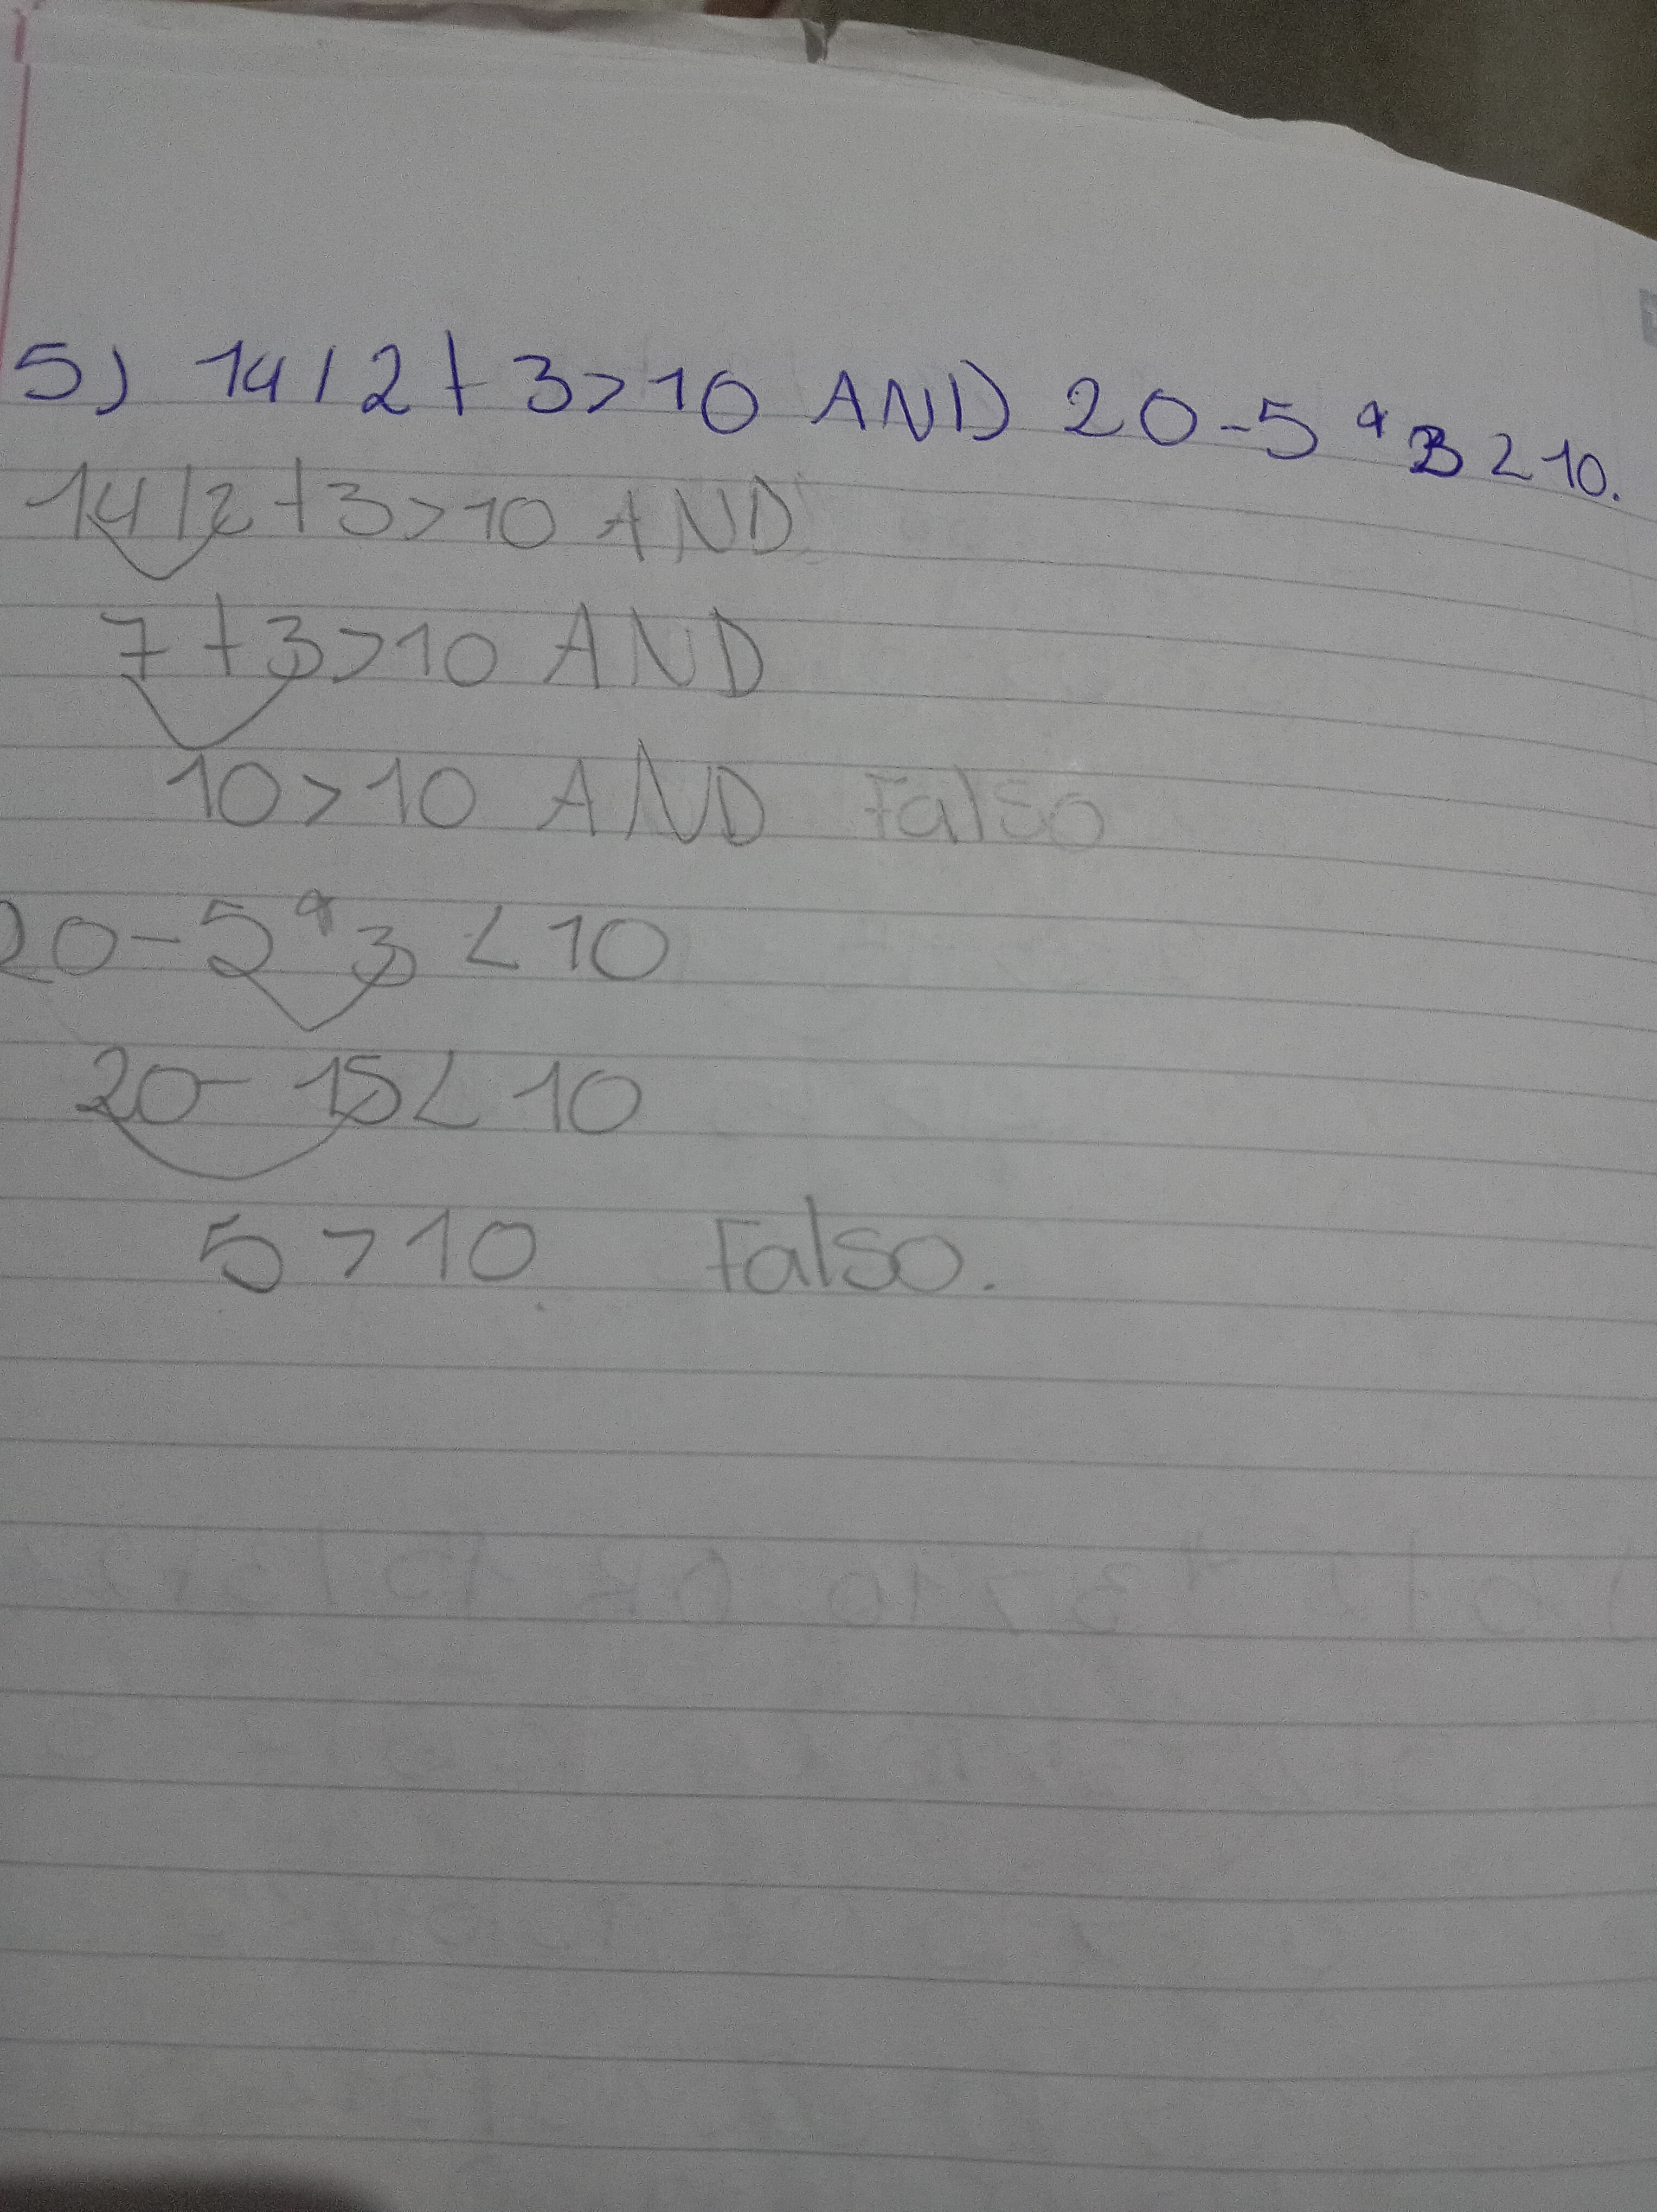 5) 14/2+3>10 AND 20-5*3<10.
14/2+3>10 AND
7+3>10 AND
10>10 AND Falso
20-5*3<10
20-15<10
5>10 Falso.